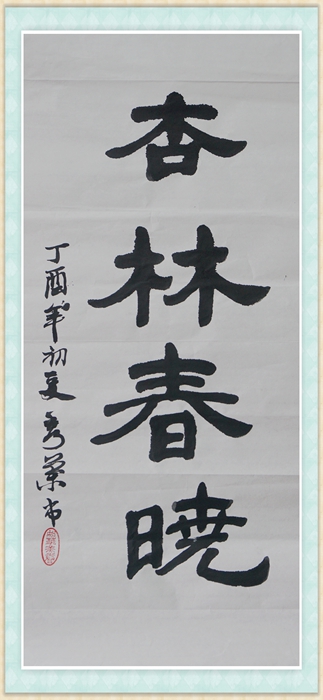 杏林春曉
丁酉年初夏